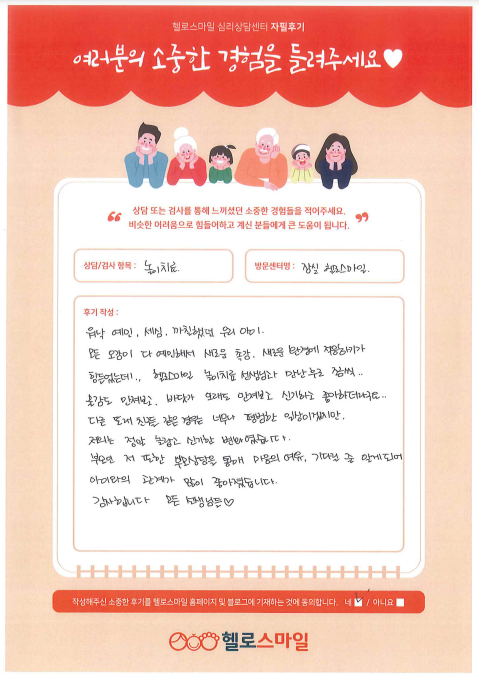 헬로스마일 심리상담센터 자필후기
여러분의 소중한 경험을 들려주세요
상담 또는 검사를 통해 느끼셨던 소중한 경험들을 적어주세요.
비슷한 어려움으로 힘들어하고 계신 분들에게 큰 도움이 됩니다.
상담/검사 항목 : 놀이치료
방문센터명 : 잠실 헬로스마일.
후기 작성 :
워낙 예민, 섬세, 까칠했던 우리 아이.
모든 오감이 다 예민해서 새로운 촉감, 새로운 환경에 적응하기가
힘들었는데.., 헬로스마일 놀이치료 선생님과 만난 후로 점점..
물감도 만져보고, 바닷가 모래도 만져보고 신기하고 좋아하더라구요..
다른 또래 친구들 같은 경우는 너무나 평범한 일상이겠지만,
저희는 정말 놀랍고 신기한 변화였습니다.
부모인 저 또한 부모상담을 통해 마음의 여유, 기다릴 줄 알게되며
아이와의 관계가 많이 좋아졌습니다.
감사합니다 모든 선생님들♡
작성해주신 소중한 후기를 헬로스마일 홈페이지 및 블로그에 기재하는 것에 동의합니다. 네 / 아니요
헬로스마일